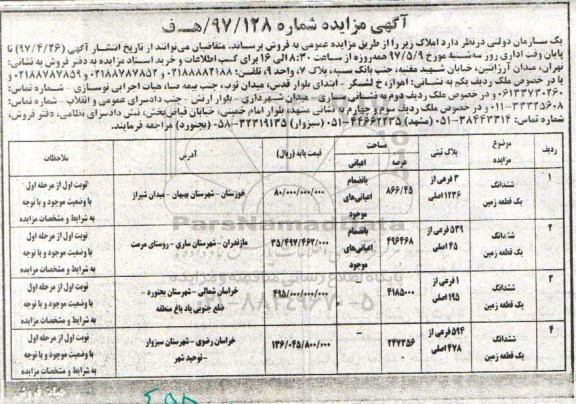 آگهی مزایده شماره ۹۷/۱۲۸/هـ ف
یک سازمان دولتی درنظر دارد املاک زیر را از طریق مزایده عمومی به فروش برساند. متقاضیان می‌توانند از تاریخ انتشار آگهی (۹۷/۴/۲۶) تا
پایان وقت اداری روز سه‌شنبه مورخ ۹۷/۵/۹ همه‌روزه از ساعت ۸:۳۰ الی ۱۶ برای کسب اطلاعات و خرید اسناد مزایده به دفتر فروش به نشانی:
تهران، میدان آرژانتین، خیابان شهید مقنیه، جنب بانک سپه، پلاک ۷، واحد ۹، تلفن: ۰۲۱۸۸۸۸۲۱۸۸ و ۰۲۱۸۸۷۸۷۸۵۲ و ۰۲۱۸۸۷۸۷۸۵۹
یا در خصوص ملک ردیف یکم به نشانی: اهواز، خ لشگر - ابتدای بلوار قدس، میدان توپ، جنب بیمه صبا، هیات اجرایی نوسازی - شماره تماس:
۰۶۱۳۳۷۳۰۲۶۰ و در خصوص ملک ردیف دوم به نشانی: ساری - میدان شهرداری - بلوار ارتش - جنب دادسرای عمومی و انقلاب - شماره تماس:
۰۱۱-۳۳۳۲۵۶۰۸ و در خصوص ملک ردیف سوم و چهارم به نشانی مشهد، بلوار امام خمینی، خیابان فیاض‌بخش، نبش دادسرای نظامی، دفتر فروش،
شماره تماس: ۳۸۴۴۳۳۱۴-۰۵۱ (مشهد) ۴۴۶۶۲۲۳۵-۰۵۱ (سبزوار) ۳۲۳۱۹۱۳۵-۰۵۸ (بجنورد) مراجعه فرمایند.
ردیف موضوع مزایده پلاک ثبتی مساحت عرصه اعیانی قیمت پایه (ریال) آدرس ملاحظات
۱ ششدانگ یک قطعه زمین ۳ فرعی از ۱۲۳۶ اصلی ۸۶۶/۴۵ بانضمام اعیانی‌های موجود ۸۰/۰۰۰/۰۰۰/۰۰۰ خوزستان - شهرستان بهبهان - میدان شیراز نوبت اول از مرحله اول با وضعیت موجود و با توجه به شرایط و مشخصات مزایده
۲ ششدانگ یک قطعه زمین ۵۳۹ فرعی از ۴۵ اصلی ۴۹۶۴۶۸ بانضمام اعیانی‌های موجود ۳۵/۴۹۷/۴۶۲/۰۰۰ مازندران - شهرستان ساری - روستای مرمت نوبت اول از مرحله اول با وضعیت موجود و با توجه به شرایط و مشخصات مزایده
۳ ششدانگ یک قطعه زمین ۱ فرعی از ۱۹۵ اصلی ۴۱۸۵۰۰۰ - ۴۹۵/۰۰۰/۰۰۰/۰۰۰ خراسان شمالی - شهرستان بجنورد - ضلع جنوبی باد باغ منطقه نوبت اول از مرحله اول با وضعیت موجود و با توجه به شرایط و مشخصات مزایده
۴ ششدانگ یک قطعه زمین ۵۹۴ فرعی از ۴۷۸ اصلی ۲۴۷۳۵۶ - ۱۳۶/۰۴۵/۸۰۰/۰۰۰ خراسان رضوی - شهرستان سبزوار - توحید شهر نوبت اول از مرحله اول با وضعیت موجود و با توجه به شرایط و مشخصات مزایده
ParsNamadData